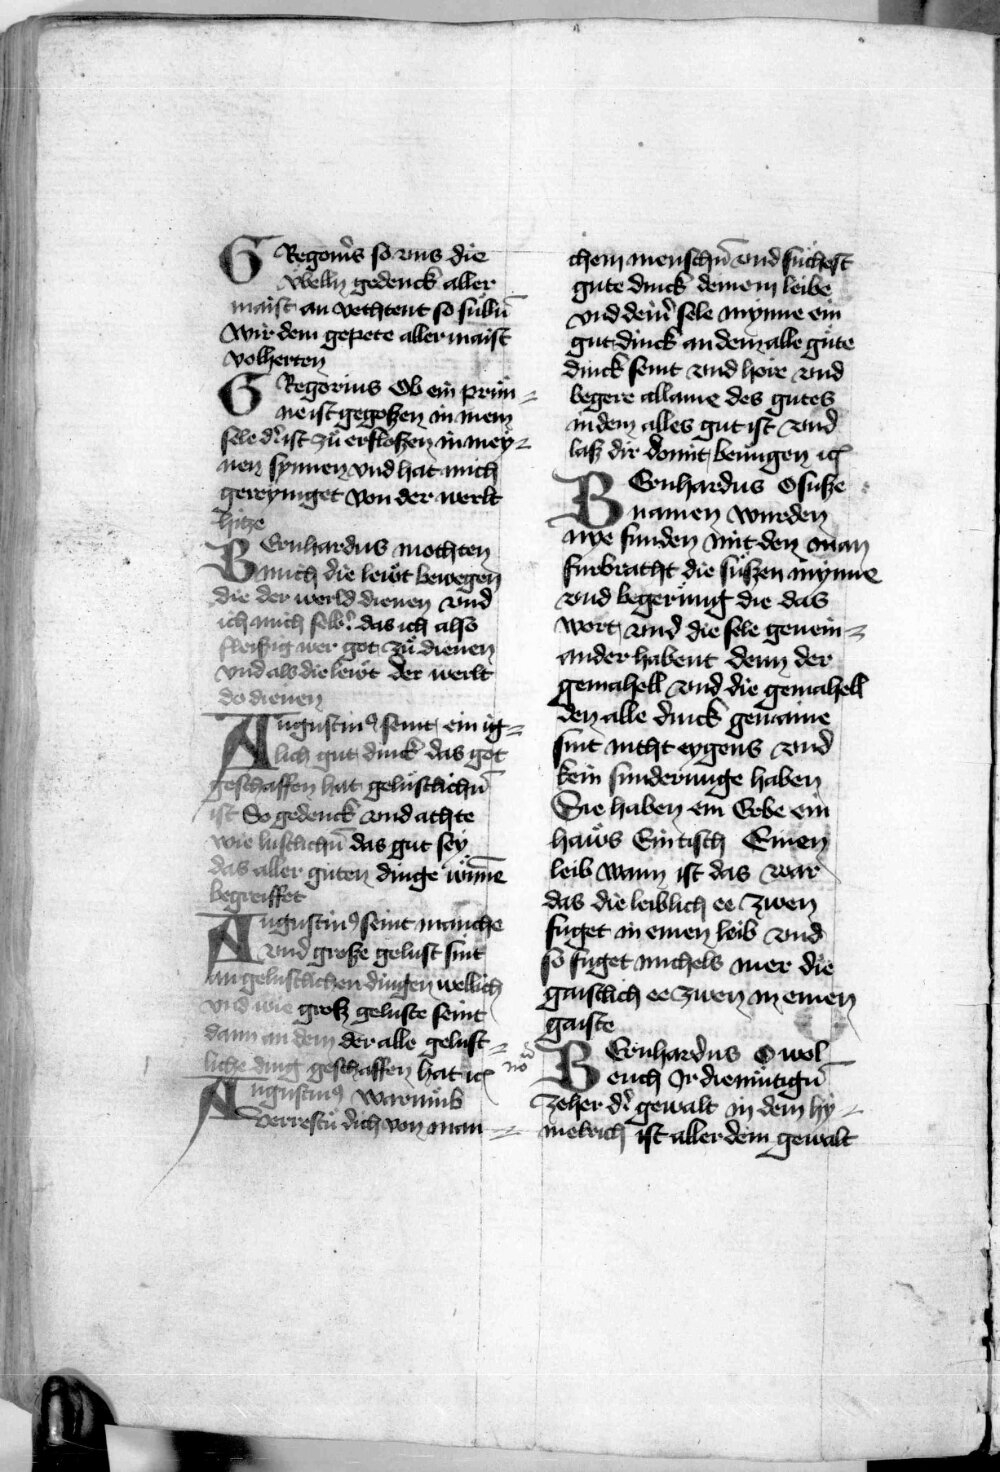 GRegori9s so vns die
Welln gedenck aller
maist an vechtent so sullu̅
wir dem gepete aller maist
volherten
GRegorius Ob ein prun=
ne ist gegoßen in mein
sele d' ist zu erfloßen in mey=
nen synnen vnd hat mich
gereyniget von der werlt
hitze
BErnhardus mochten
mich die lewt bewegen
die der werld dienen vnd
ich mich selb' das ich also
fleißig wer got zu dienen
vnd als die lewt der werlt
do dienen
Augustin9 seint ein ig=
lich gut dinck das got
geschaffen hat gelustlichn̅
ist So gedenck vnd achte
wie lustlichn̅ das gut sey
das aller guten dinge wu̅ne
begreiffet
Augustin9 seint manche
vnd große gelust sint
an gelustlichen dingen wellich
vnd wie groß geluste seint
dann an dem der alle gelust=
liche ding geschaffen hat
Augustin9 warumb
verrestu dich von man=
chem menschn̅ vnd suchest
gute dinck deinem leibe
vnd dein' sele mynne ein
gut dinck an dem alle gute
dinck seint vnd hore vnd
begere allaine des gutes
in dem alles gut ist vnd
laß dir domit benugen
BErnhardus O suße
namen wurden
nye funden mit den man
furbracht die sußen mynne
vnd begerung die das
wort vnd die sele genein=
ander habent denn der
gemahell vnd die gemahell
den alle dinck gemaine
sint nicht eygens vnd
kein sunderunge haben
Sie haben ein Erbe ein
haws Ein tisch Einen
leib wann ist das war
das die leiblich ee zwen
fuget in einen leib vnd
so fuget michels mer die
gaistlich ee zwen in einen
gaiste
BErnhardus O wol
euch Ir diemutign̅
zeher d' gewalt in dem hy=
melrich ist aller dem gewalt